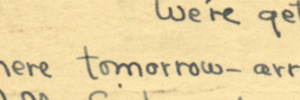 We're get
here tomorrow - arr